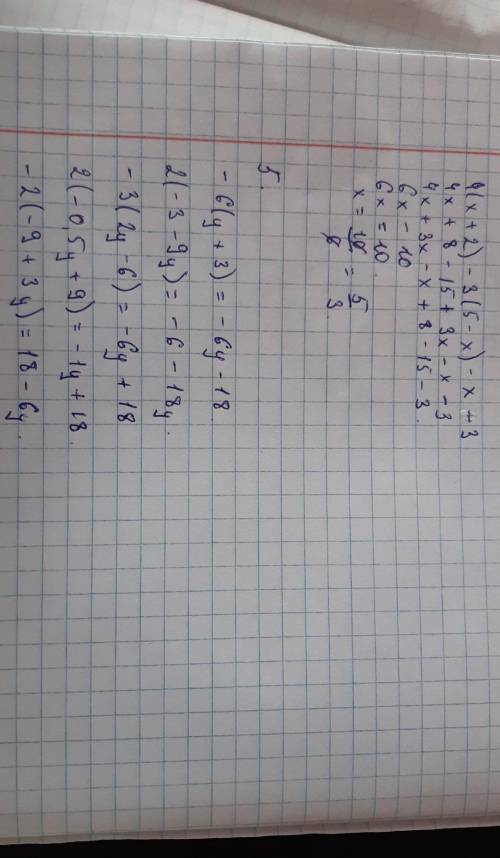 4(x+2) - 3(5-x) - x - 3
4x + 8 - 15 + 3x - x - 3
4x + 3x - x + 8 - 15 - 3.
6x - 10
6x = 10.
x = 10/6 = 5/3
5.
- 6(y + 3) = - 6y - 18.
2(-3 - 9y) = - 6 - 18y.
- 3(2y - 6) = - 6y + 18
2(-0,5y + 9) = - 1y + 18.
- 2(-9 + 3y) = 18 - 6y.